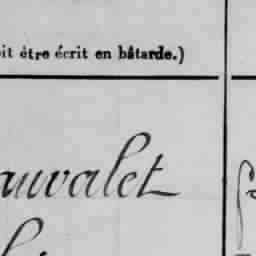 it être écrit en bâtarde.)
auvalet